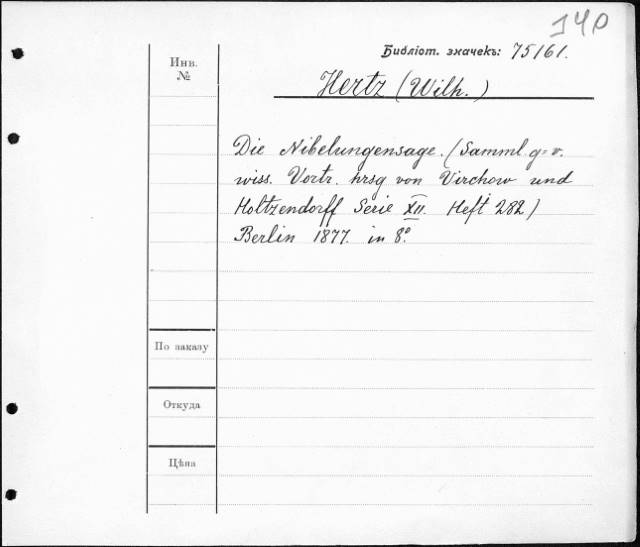 140
Библіот. значекъ: 75161.
Инв.
№
Hertz (Wilh.)
Die Nibelungensage. (Samml. g. v.
wiss. Vortr. hrsg von Virchow und
Holtzendorff Serie XII. Heft 282)
Berlin 1877. in 8º.
По заказу
Откуда
Цѣна